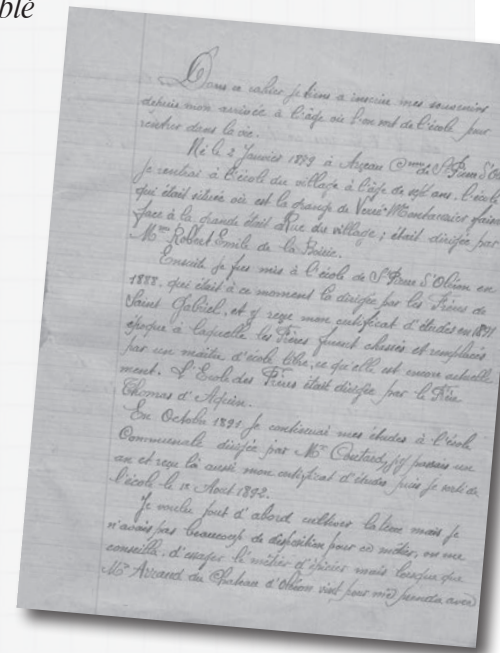 blé
Dans ce cahier je tiens a inscrire mes souvenirs
depuis mon arrivée à l'âge où l'on sort de l'école pour
rentrer dans la vie.
Né le 2 Janvier 1879 à Arceau Cne de St Pierre d'O
je rentrai à l'école du village à l'âge de sept ans. l'école
qui était située où est la grange de Montavaier faisan
face à la grande Rue du village ; était dirigée par
Mme Robert Emile de la Boirie.
Ensuite je fus mis à l'école de St Pierre d'Oléron en
1888. qui était à ce moment la dirigée par les Frères de
Saint Gabriel, et y reçu mon certificat d'études en 1891
époque à laquelle les Frères furent chassés et remplacés
par un maître d'école libre, ce qu'elle est encore actuelle
ment. L'Ecole des Frères était dirigée par le Frère
Thomas d'Aquin.
En Octobre 1891 je continuai mes études à l'école
Communale dirigée par Mr Coutard, j'y passais un
an et reçu là aussi mon certificat d'études puis je sorti de
l'école le 12 Aout 1892.
Je voulu tout d'abord cultiver la terre mais je
n'avais pas beaucoup de disposition pour ce métier, on me
conseilla d'essayer le métier d'épicier mais lorsque que
Mr du Chateau d'Oléron vint pour me prendre avec